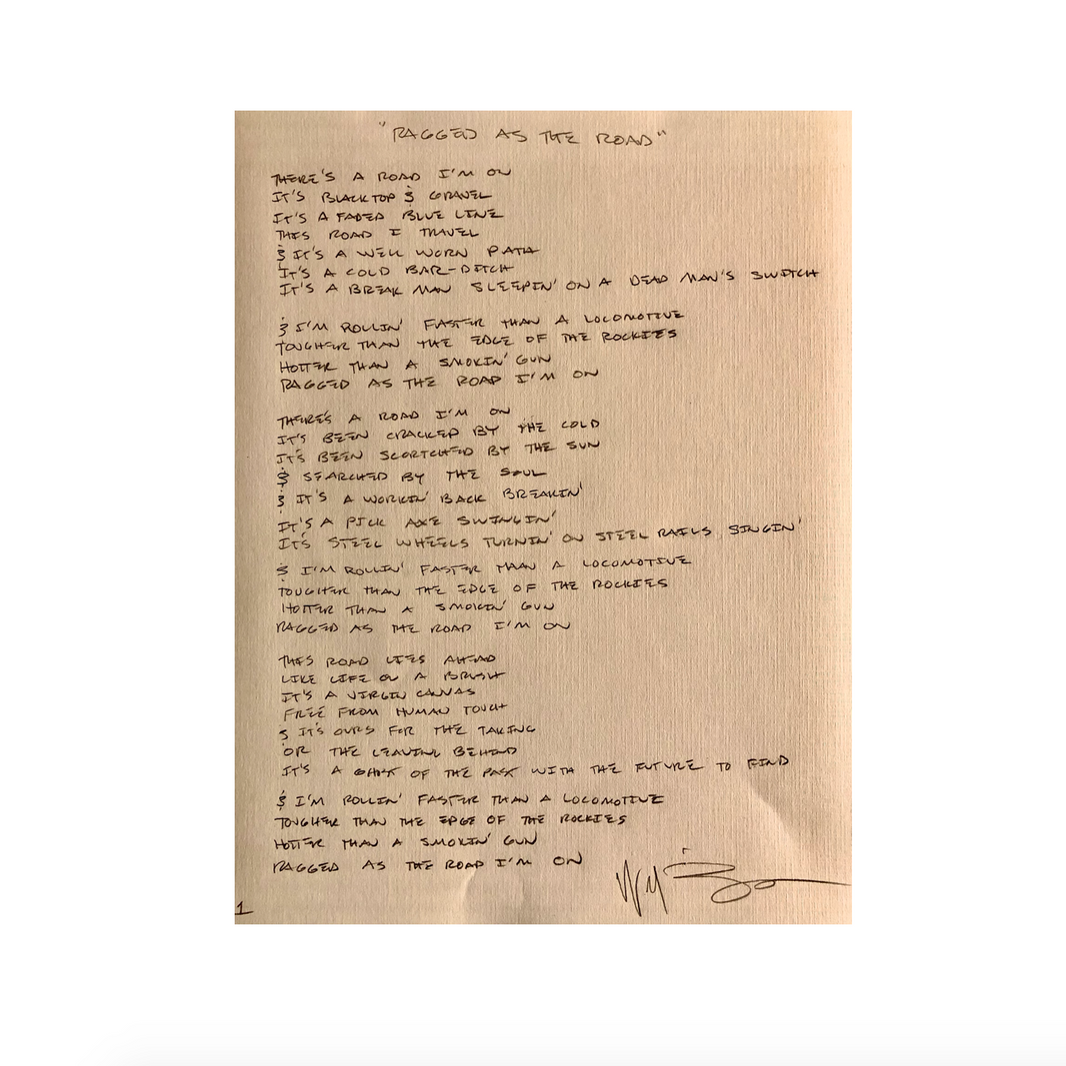 "RAGGED AS THE ROAD"
THERE'S A ROAD I'M ON
IT'S BLACKTOP & GRAVEL
IT'S A FADED BLUE LINE
THIS ROAD I TRAVEL
& IT'S A WELL WORN PATH
IT'S A COLD BAR-DITCH
IT'S A BREAK MAN SLEEPIN' ON A DEAD MAN'S SWITCH
& I'M ROLLIN' FASTER THAN A LOCOMOTIVE
TOUGHER THAN THE EDGE OF THE ROCKIES
HOTTER THAN A SMOKIN' GUN
RAGGED AS THE ROAD I'M ON
THERE'S A ROAD I'M ON
IT'S BEEN CRACKED BY THE COLD
IT'S BEEN SCORTCHED BY THE SUN
& SEARCHED BY THE SOUL
& IT'S A WORKIN' BACK BREAKIN'
IT'S A PICK AXE SWINGIN'
IT'S STEEL WHEELS TURNIN' ON STEEL RAILS SINGIN'
& I'M ROLLIN' FASTER THAN A LOCOMOTIVE
TOUGHER THAN THE EDGE OF THE ROCKIES
HOTTER THAN A SMOKIN' GUN
RAGGED AS THE ROAD I'M ON
THIS ROAD LIES AHEAD
LIKE LIFE ON A BRUSH
IT'S A VIRGIN CANVAS
FREE FROM HUMAN TOUCH
& IT'S OURS FOR THE TAKING
OR THE LEAVING BEHIND
IT'S A GHOST OF THE PAST WITH THE FUTURE TO FIND
& I'M ROLLIN' FASTER THAN A LOCOMOTIVE
TOUGHER THAN THE EDGE OF THE ROCKIES
HOTTER THAN A SMOKIN' GUN
RAGGED AS THE ROAD I'M ON
1